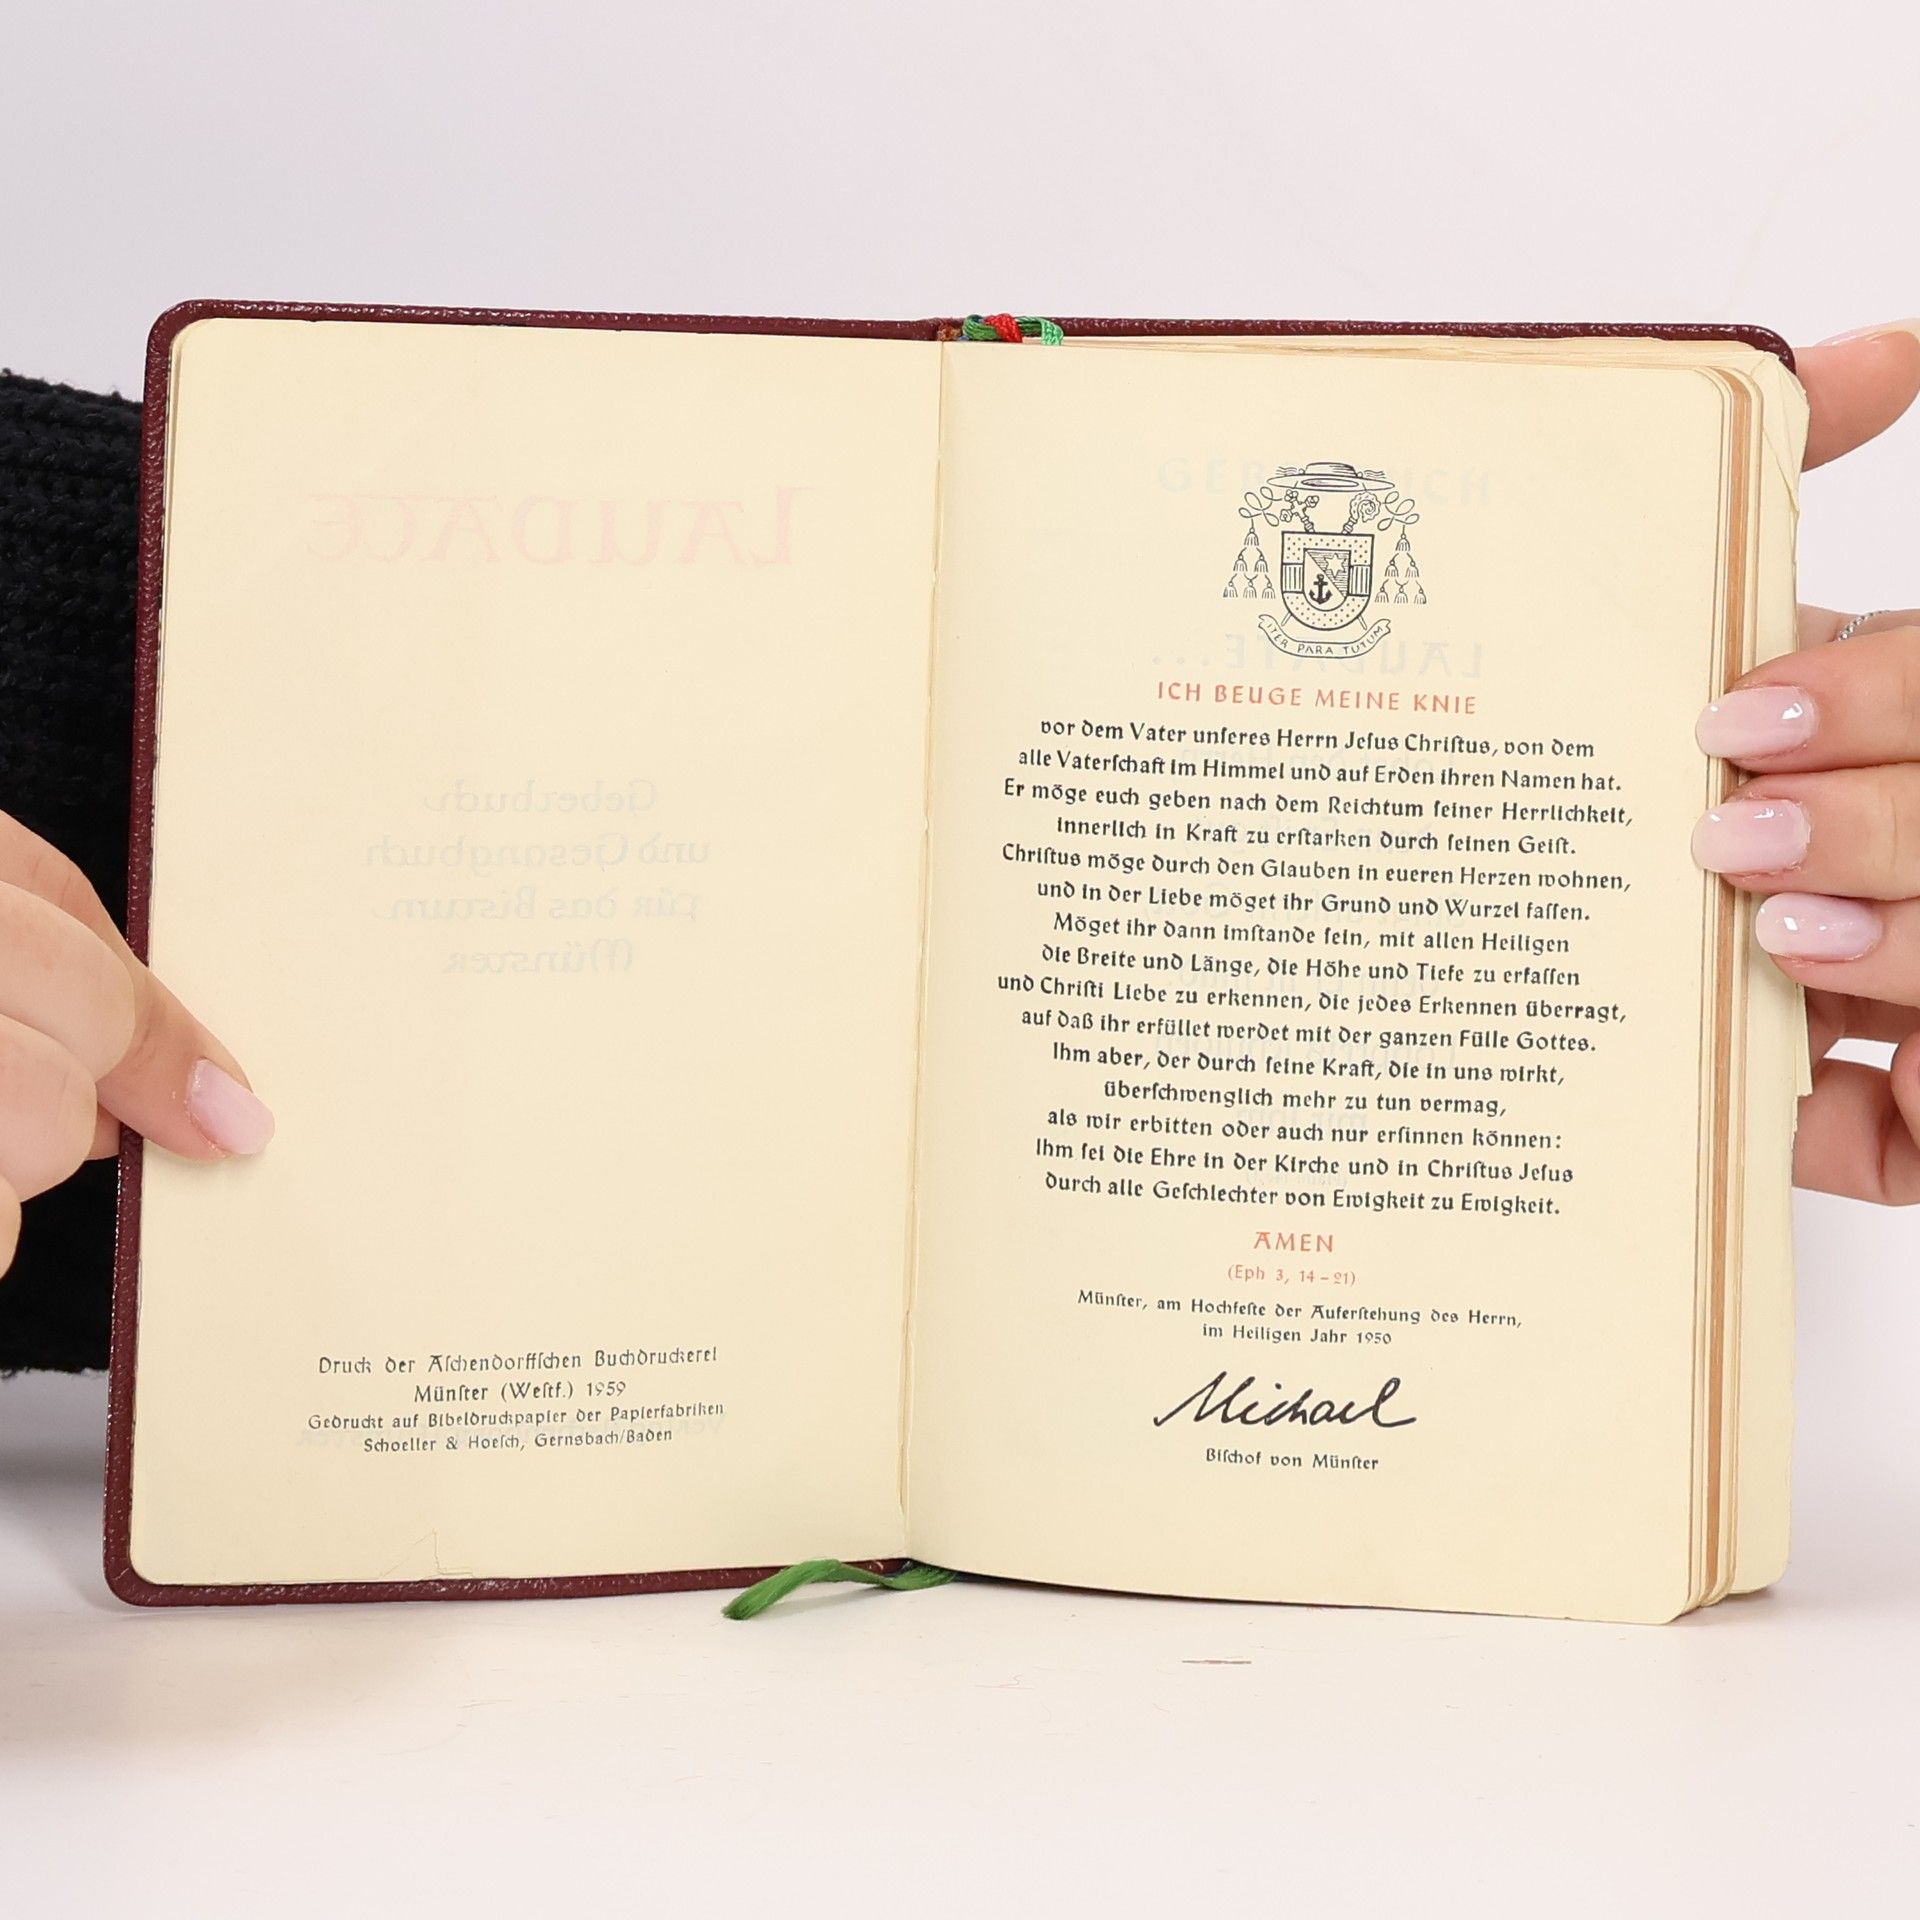 Druck der Aſchendorffſchen Buchdruckerei
Münſter (Weſtf.) 1959
Gedruckt auf Bibeldruckpapier der Papierfabriken
Schoeller & Hoeſch, Gernsbach/Baden
ITER PARA TUTUM
ICH BEUGE MEINE KNIE
vor dem Vater unſeres Herrn Jeſus Chriſtus, von dem
alle Vaterſchaft im Himmel und auf Erden ihren Namen hat.
Er möge euch geben nach dem Reichtum ſeiner Herrlichkeit,
innerlich in Kraft zu erſtarken durch ſeinen Geiſt.
Chriſtus möge durch den Glauben in eueren Herzen wohnen,
und in der Liebe möget ihr Grund und Wurzel faſſen.
Möget ihr dann imſtande ſein, mit allen Heiligen
die Breite und Länge, die Höhe und Tiefe zu erfaſſen
und Chriſti Liebe zu erkennen, die jedes Erkennen überragt,
auf daß ihr erfüllet werdet mit der ganzen Fülle Gottes.
Ihm aber, der durch ſeine Kraft, die in uns wirkt,
überſchwenglich mehr zu tun vermag,
als wir erbitten oder auch nur erſinnen können:
Ihm ſei die Ehre in der Kirche und in Chriſtus Jeſus
durch alle Geſchlechter von Ewigkeit zu Ewigkeit.
AMEN
(Eph 3, 14–21)
Münſter, am Hochfeſte der Auferſtehung des Herrn,
im Heiligen Jahr 1950
Michael
Biſchof von Münſter